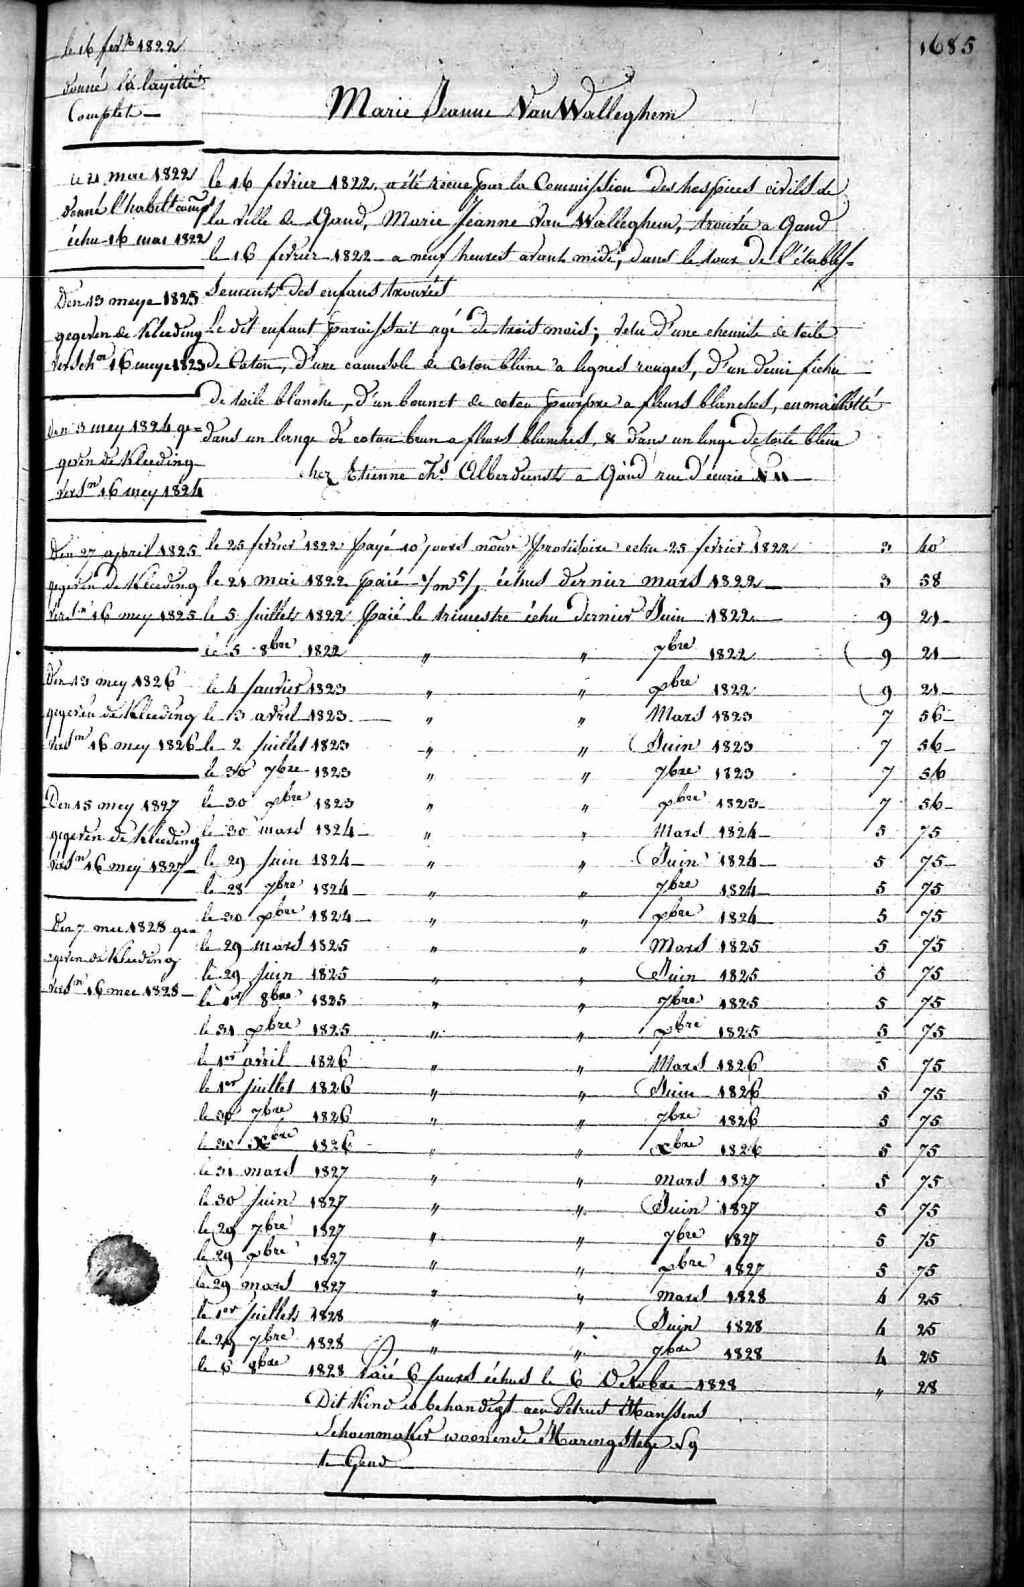 1685
le 16 fevr 1822
donné la layette
Complet
Marie Jeanne Van Walleghem
le 21 mai 1822
donné l'habilt comp
échu 16 mai 1822
Den 13 meye 1823
gegeven de Kleeding
versch.en 16 meye 1823
Den 3 mey 1824 ge=
geven de Kleeding
vers.n 16 mey 1824
Den 27 april 1825
gegeven de Kleeding
vers.n 16 mey 1825
Den 13 mey 1826
gegeven de Kleeding
vers.n 16 mey 1826
Den 15 mey 1827
gegeven de Kleeding
vers.n 16 mey 1827
Den 7 mei 1828 ge=
geven de Kleeding
vers.n 16 mei 1828
le 16 fevrier 1822, a été recue par la Commission des hospices civils de
la ville de Gand, Marie Jeanne Van Walleghem, trouvée a Gand
le 16 fevrier 1822 a neuf heures avant midi, dans le tour de l'établis=
sement des enfans trouvés
Le dit enfant paraissait agé de trois mois; vetu d'une chemise de toile
de Coton, d'une camesole de coton blanc a lignes rouges, d'un demi fichu
de toile blanche, d'un bonnet de coton pourpre a fleurs blanches, enmaillotté
dans un lange de coton brun a fleurs blanches, & dans un linge de toile bleue
chez Etienne Ch.s Alberdienst a Gand rue d'écurie N 11
le 25 fevrier 1822 payé 10 jours nourr provisoire echu 25 fevrier 1822 3 40
le 21 mai 1822 paié échus dernier mars 1822 3 58
le 5 juillet 1822 paié le trimestre échu dernier Juin 1822 9 21
le 5 8bre 1822 " " 7bre 1822 9 21
le 4 janvier 1823 " " xbre 1822 9 21
le 13 avril 1823 " " Mars 1823 7 56
le 2 juillet 1823 " " Juin 1823 7 56
le 30 7bre 1823 " " 7bre 1823 7 56
le 30 xbre 1823 " " xbre 1823 7 56
le 30 mars 1824 " " Mars 1824 5 75
le 29 juin 1824 " " Juin 1824 5 75
le 28 7bre 1824 " " 7bre 1824 5 75
le 30 xbre 1824 " " xbre 1824 5 75
le 29 mars 1825 " " Mars 1825 5 75
le 29 juin 1825 " " Juin 1825 5 75
le 1er 8bre 1825 " " 7bre 1825 5 75
le 31 xbre 1825 " " xbre 1825 5 75
le 1er avril 1826 " " Mars 1826 5 75
le 1er juillet 1826 " " Juin 1826 5 75
le 30 7bre 1826 " " 7bre 1826 5 75
le 30 Xbre 1826 " " xbre 1826 5 75
le 31 mars 1827 " " mars 1827 5 75
le 30 juin 1827 " " Juin 1827 5 75
le 29 7bre 1827 " " 7bre 1827 5 75
le 29 xbre 1827 " " xbre 1827 5 75
le 29 mars 1827 " " mars 1828 4 25
le 1er juillet 1828 " " Juin 1828 4 25
le 29 7bre 1828 " " 7bre 1828 4 25
le 6 8bre 1828 Paié 6 jours échus le 6 Octobre 1828 " 28
Dit Kind is behandigt aen Petrus Hanssens
Schoenmaker woonende Maringstege
te Gend